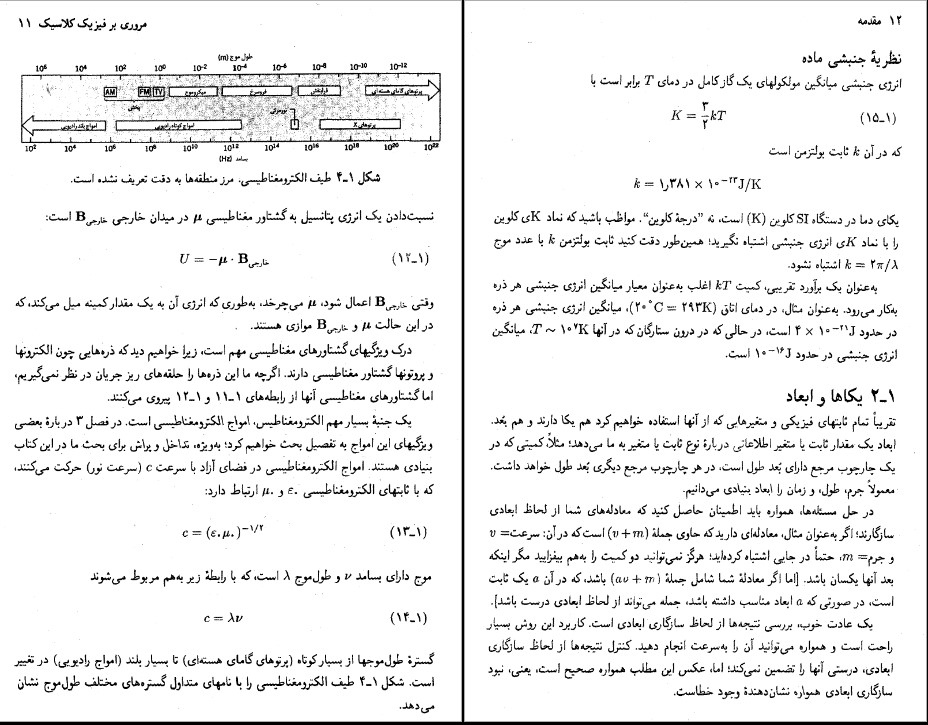 مروری بر فیزیک کلاسیک ۱۱
طول موج (m)
10⁶ 10⁴ 10² 10⁰ 10⁻² 10⁻⁴ 10⁻⁶ 10⁻⁸ 10⁻¹⁰ 10⁻¹²
AM FM TV میکروموج فروسرخ فرابنفش پرتوهای گامای هسته‌ای
پخش
امواج بلند رادیویی امواج کوتاه رادیویی نور مرئی پرتوهای X
10² 10⁴ 10⁶ 10⁸ 10¹⁰ 10¹² 10¹⁴ 10¹⁶ 10¹⁸ 10²⁰ 10²²
بسامد (Hz)
شکل ۱ـ۴ طیف الکترومغناطیسی. مرز منطقه‌ها به دقت تعریف نشده است.
نسبت‌دادن یک انرژی پتانسیل به گشتاور مغناطیسی μ در میدان خارجی B خارجی است:
U = −μ · B خارجی (۱ـ۱۲)
وقتی B خارجی اعمال شود، μ می‌چرخد، به‌طوری که انرژی آن به یک مقدار کمینه میل می‌کند، که
در این حالت μ و B خارجی موازی هستند.
درک ویژگیهای گشتاورهای مغناطیسی مهم است، زیرا خواهیم دید که ذره‌هایی چون الکترونها
و پروتونها گشتاور مغناطیسی دارند. اگرچه ما این ذره‌ها را حلقه‌های ریز جریان در نظر نمی‌گیریم،
اما گشتاورهای مغناطیسی آنها از رابطه‌های ۱ـ۱۱ و ۱ـ۱۲ پیروی می‌کنند.
یک جنبهٔ بسیار مهم الکترومغناطیس، امواج الکترومغناطیسی است. در فصل ۳ دربارهٔ بعضی
ویژگیهای این امواج به تفصیل بحث خواهیم کرد؛ به‌ویژه، تداخل و پراش برای بحث ما در این کتاب
بنیادی هستند. امواج الکترومغناطیسی در فضای آزاد با سرعت c (سرعت نور) حرکت می‌کنند،
که با ثابتهای الکترومغناطیسی ε۰ و μ۰ ارتباط دارد:
c = (ε۰μ۰)⁻¹/² (۱ـ۱۳)
موج دارای بسامد ν و طول‌موج λ است، که با رابطهٔ زیر به‌هم مربوط می‌شوند
c = λν (۱ـ۱۴)
گسترهٔ طول‌موجها از بسیار کوتاه (پرتوهای گامای هسته‌ای) تا بسیار بلند (امواج رادیویی) در تغییر
است. شکل ۱ـ۴ طیف الکترومغناطیسی را با نامهای متداول گستره‌های مختلف طول‌موج نشان
می‌دهد.
۱۲ مقدمه
نظریهٔ جنبشی ماده
انرژی جنبشی میانگین مولکولهای یک گاز کامل در دمای T برابر است با
K = ۳/۲ kT (۱ـ۱۵)
که در آن k ثابت بولتزمن است
k = ۱٫۳۸۱ × ۱۰⁻²³ J/K
یکای دما در دستگاه SI کلوین (K) است، نه "درجهٔ کلوین". مواظب باشید که نماد Kی کلوین
را با نماد Kی انرژی جنبشی اشتباه نگیرید؛ همین‌طور دقت کنید ثابت بولتزمن k با عدد موج
k = ۲π/λ اشتباه نشود.
به‌عنوان یک برآورد تقریبی، کمیت kT اغلب به‌عنوان معیار میانگین انرژی جنبشی هر ذره
به‌کار می‌رود. به‌عنوان مثال، در دمای اتاق (۲۰°C = ۲۹۳K)، میانگین انرژی جنبشی هر ذره
در حدود ۴ × ۱۰⁻²¹ J است، در حالی که در درون ستارگان که در آنها T ∼ ۱۰⁷K، میانگین
انرژی جنبشی در حدود ۱۰⁻¹⁶ J است.
۱ـ۲ یکاها و ابعاد
تقریباً تمام ثابتهای فیزیکی و متغیرهایی که از آنها استفاده خواهیم کرد هم یکا دارند و هم بُعد.
ابعاد یک مقدار ثابت یا متغیر اطلاعاتی دربارهٔ نوع ثابت یا متغیر به ما می‌دهد؛ مثلاً کمیتی که در
یک چارچوب مرجع دارای بُعد طول است، در هر چارچوب مرجع دیگری بُعد طول خواهد داشت.
معمولاً جرم، طول، و زمان را ابعاد بنیادی می‌دانیم.
در حل مسئله‌ها، همواره باید اطمینان حاصل کنید که معادله‌های شما از لحاظ ابعادی
سازگارند؛ اگر به‌عنوان مثال، معادله‌ای دارید که حاوی جملهٔ (v + m) است که در آن: سرعت = v
و جرم = m، حتماً در جایی اشتباه کرده‌اید؛ هرگز نمی‌توانید دو کمیت را به‌هم بیفزایید مگر اینکه
بعد آنها یکسان باشد. [اما اگر معادلهٔ شما شامل جملهٔ (av + m) باشد، که در آن a یک ثابت
است، در صورتی که a ابعاد مناسب داشته باشد، جمله می‌تواند از لحاظ ابعادی درست باشد].
یک عادت خوب، بررسی نتیجه‌ها از لحاظ سازگاری ابعادی است. کاربرد این روش بسیار
راحت است و همواره می‌توانید آن را به‌سرعت انجام دهید. کنترل نتیجه‌ها از لحاظ سازگاری
ابعادی، درستی آنها را تضمین نمی‌کند؛ اما، عکس این مطلب همواره صحیح است، یعنی، نبود
سازگاری ابعادی همواره نشان‌دهندهٔ وجود خطاست.